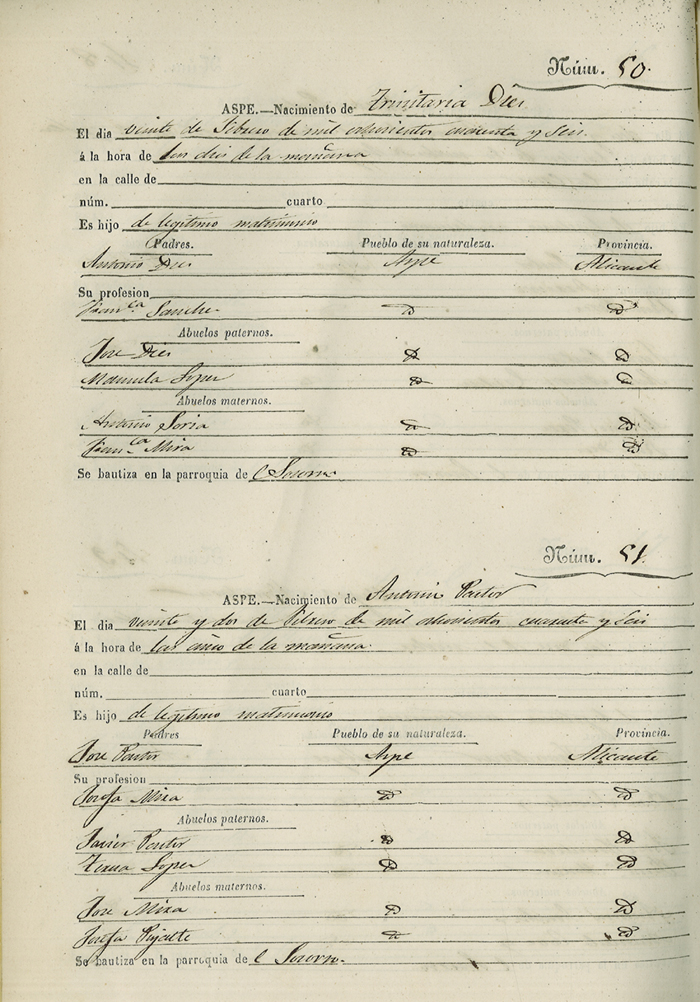 Núm. 50.
ASPE.—Nacimiento de Trinitaria Dies
El dia veinte de Febrero de mil ochocientos cuarenta y seis.
á la hora de las dies de la mañana
en la calle de
núm. cuarto
Es hijo de legitimo matrimonio
Padres. Pueblo de su naturaleza. Provincia.
Antonio Dies Aspe Alicante
Su profesion
Fran.ca Sanches
Abuelos paternos.
Jose Dies
Manuela Lopes
Abuelos maternos.
Antonio Soria
Fran.ca Mira
Se bautiza en la parroquia de l Socorro
Núm. 51.
ASPE.—Nacimiento de Antonio Pastor
El dia veinte y dos de Febrero de mil ochocientos cuarenta y seis
á la hora de las cinco de la mañana
en la calle de
núm. cuarto
Es hijo de legitimo matrimonio
Padres Pueblo de su naturaleza. Provincia.
Jose Pastor Aspe Alicante
Su profesion
Josefa Mira
Abuelos paternos.
Javier Pastor
Teresa Lopes
Abuelos maternos.
Jose Mira
Josefa Pujalte
Se bautiza en la parroquia de l Socorro.